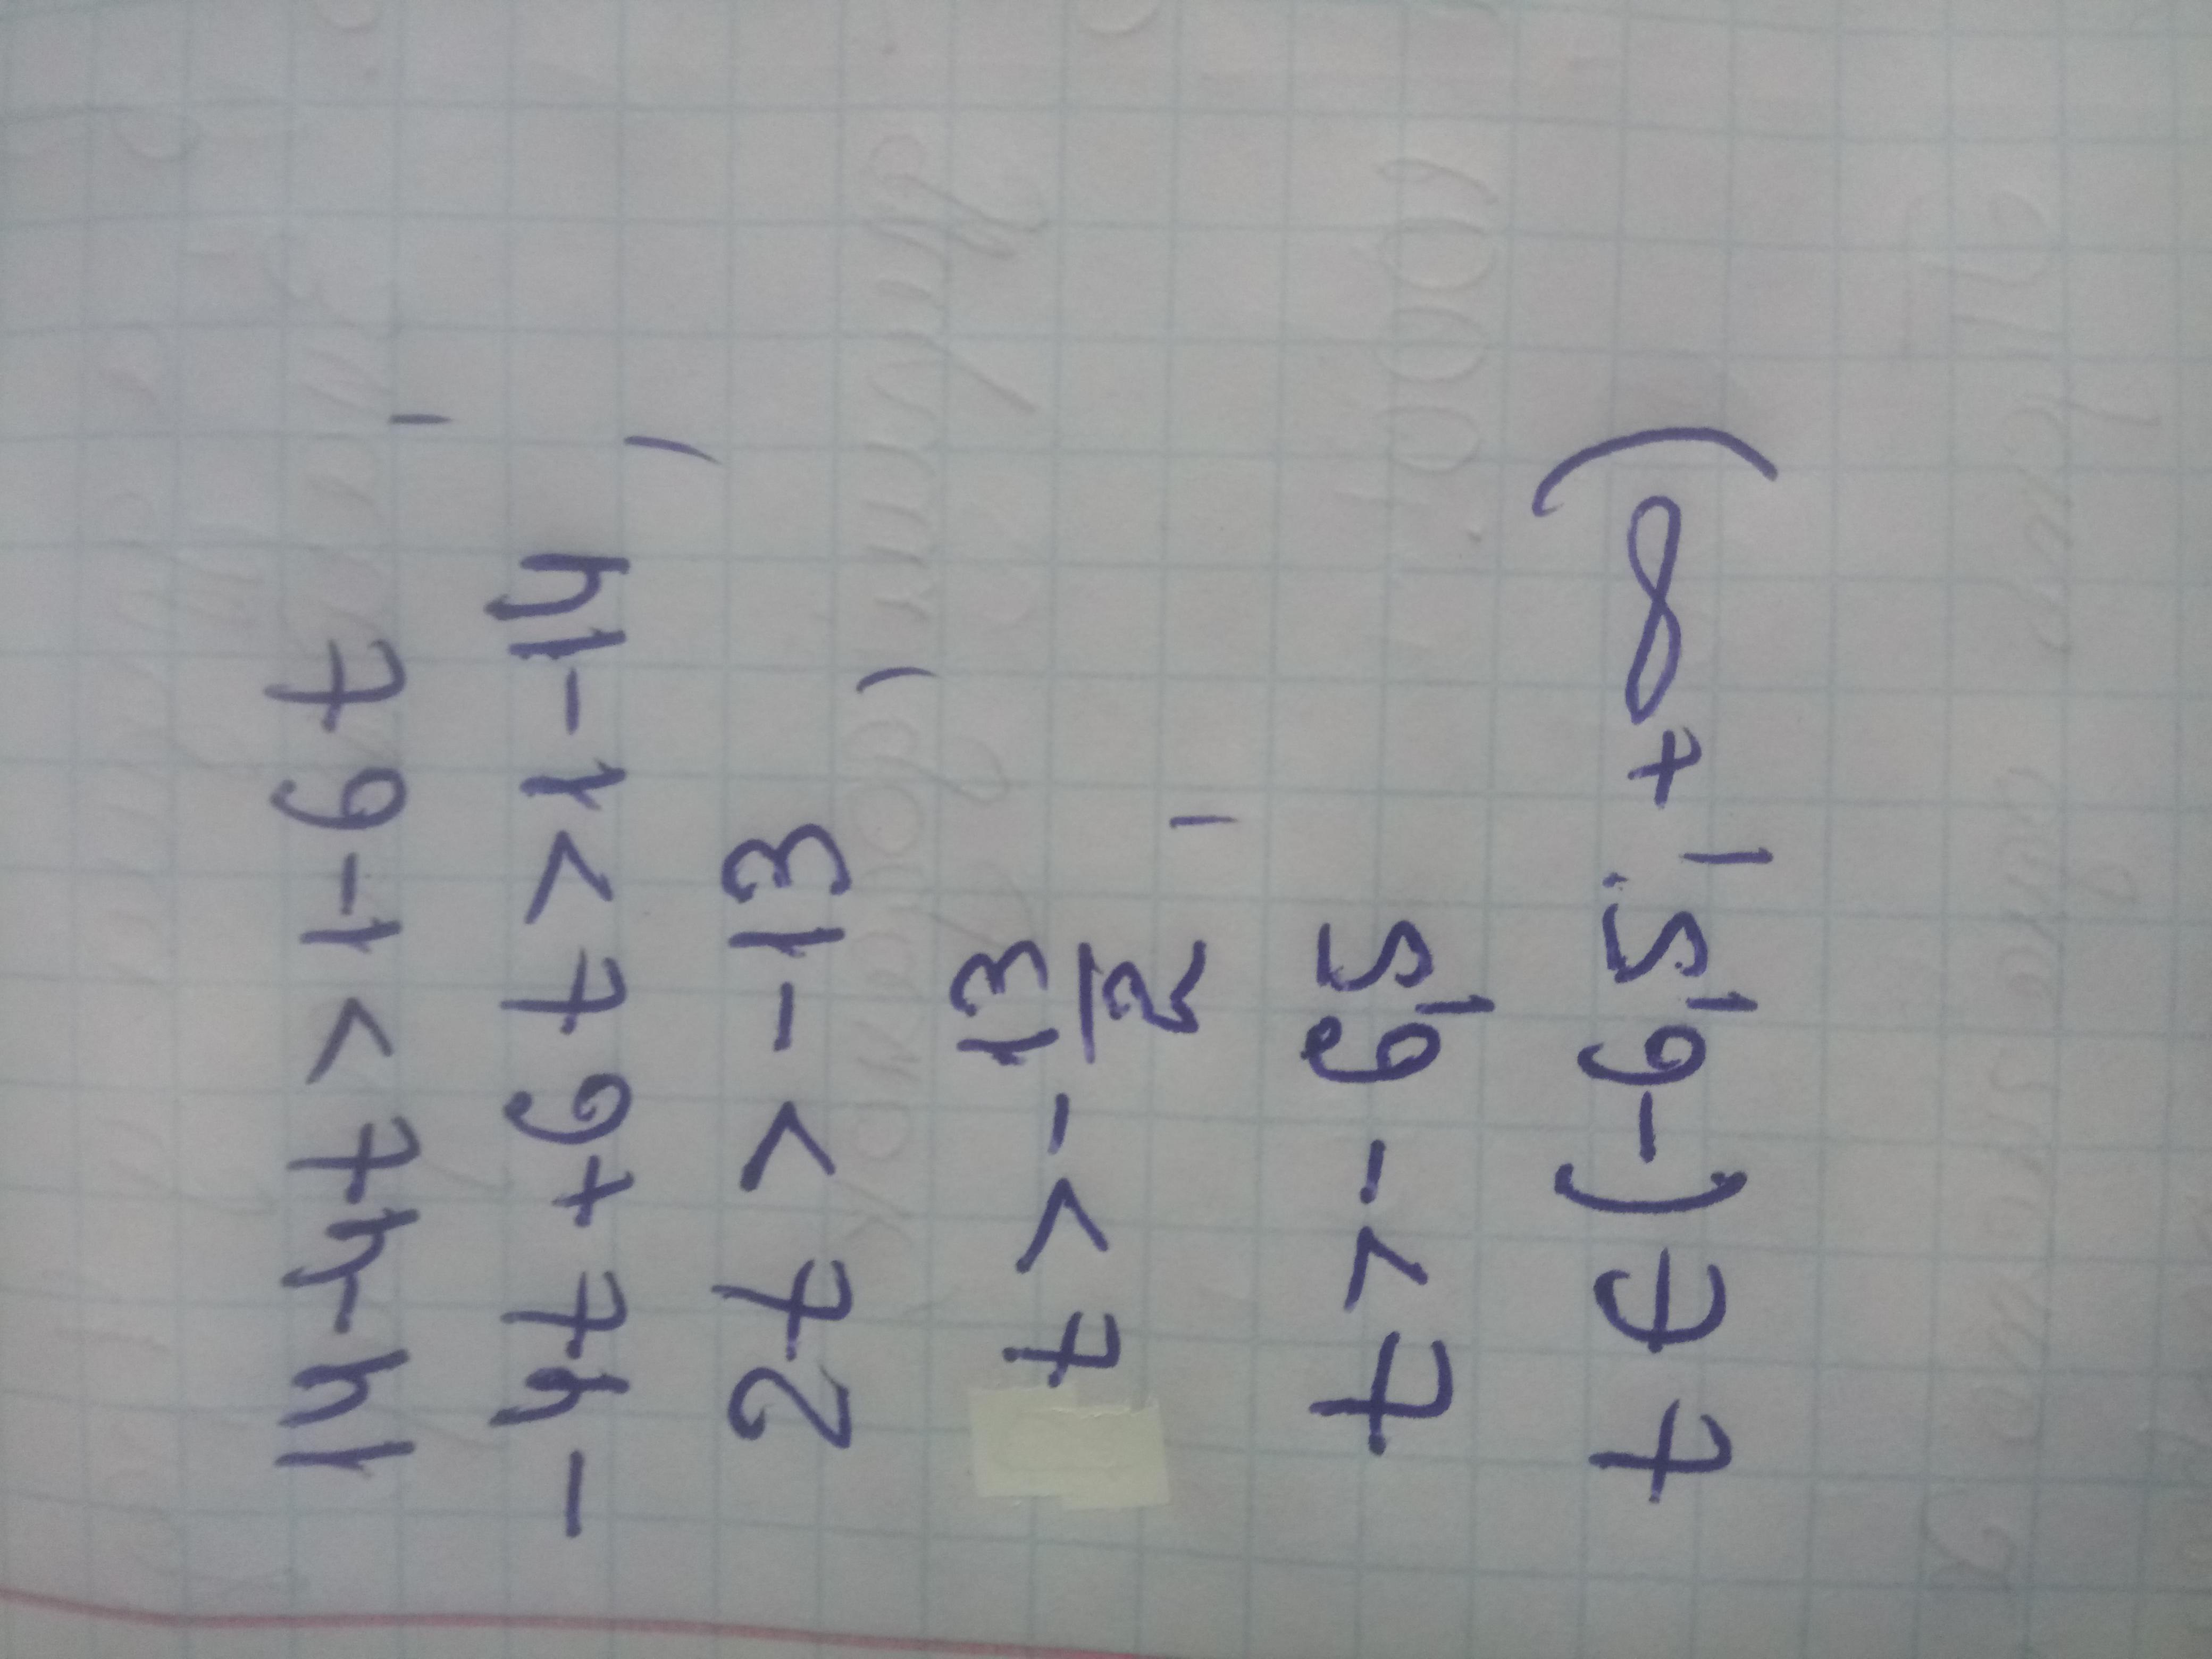 14-4t>1-6t,
-4t+6t>1-14,
2t>-13,
t>-13/2,
t>-6,5
t∈(-6,5; +∞)